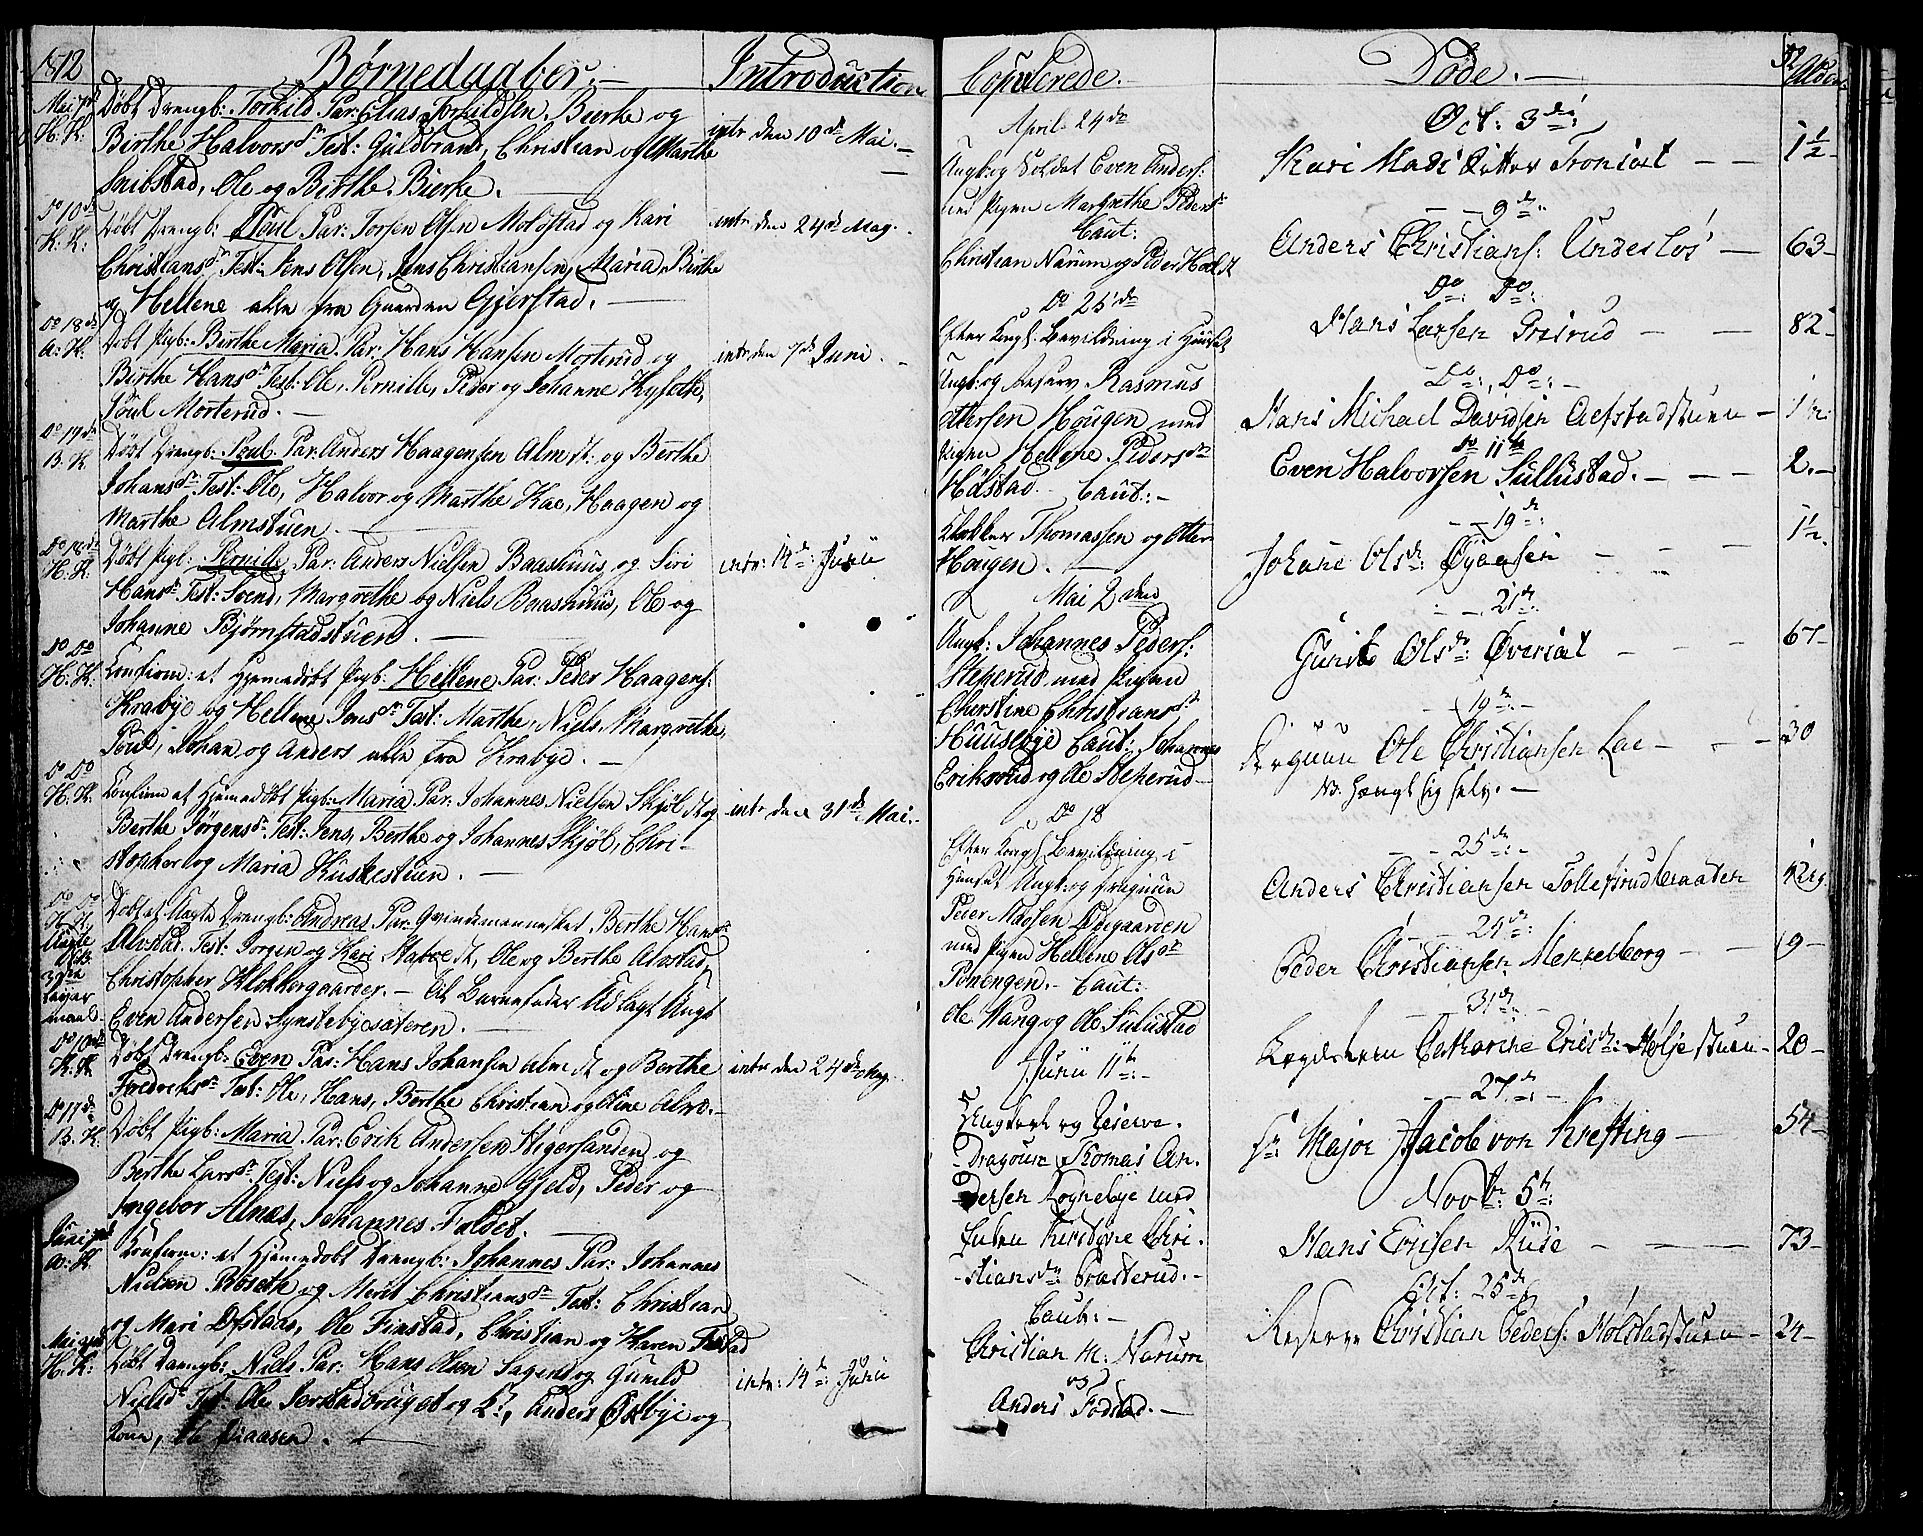 1812
Børnedaaber.—
Introduction
Mai 7de Døbt Drengb: Torkild Par: Elias Torkildsen Bierke og
H: K: Birthe Halvorsdr Test: Guldbrand, Christian og Marthe
Snibstad, Ole og Birthe Bierke.
intr den 10de Mai.—
Do 10de Døbt Drengb: Poul Par: Torsen Olsen Molstad og Kari
H: K: Christiansdr Test: Jens Olsen, Jens Christiansen, Maria, Birthe
og Hellene alle fra Gaarden Gjerstad.
intr den 24de Maj.
Do 18de Døbt Pigb: Birthe Maria Par: Hans Hansen Morterud og
A: K: Birthe Hansdr Test: Ole, Pernille, Peder og Johanne
Poul Morterud.
intr den 7de Juni.
Do 19de Døbt Drengb: Poul Par: Anders Haagensen Almst: og Berthe
B. K Johansdr Test: Ole, Halvor og Marthe Kae, Haagen og
Marthe Almstuen
Do 18de Døbt Pigb: Pernille Par: Anders Nielsen Baashuus og Siri
H: K: Hansdr Test: Svend, Margrethe og Niels Baashuus, Ole og
Johanne Bjørnstadstuen.
intr: 14de: Junii
Do Do Confirm: et Hjemedøbt Pigb: Hellene Par: Peder Haagens:
H: K: Krabye og Hellene Jensdr Test: Marthe, Niels, Margrethe,
Poul, Johan og Anders alle fra Krabye.
Do Do Confirm et Hjemedøbt Pigb: Maria Par: Johannes Nielsen Skjøl og
H: K. Berthe Jørgensdr Test: Jens, Berthe og Johannes Skjøl, Chri-
stopher og Maria Huskestuen.
intr den 31de Mai.
Do Do Døbt et Uægte Drengb: Andreas Par: Qvindemennesket Berthe Hansdr
H: K Alvstad. Test: Jørgen og Kari, Ole og Berthe Alvstad,
Uægte
Christopher Klokkergaarden.— Til Barnefader Udlagt Ungk
Leyermaal
Even Andersen Synstebyesæteren.
Do 10de Døbt Drengb: Even Par: Hans Johansen Almst og Berthe
H. K Fredrichsdr Test: Ole, Hans, Berthe Christian og Oline Alm.
intr den 24de Maj.
Do 17de Døbt Pigb: Maria Par: Erik Andersen Stigersanden og
B. K. Berthe Larsdr Test: Niels og Johanne Gjeld, Peder og
Ingebor Alnæs, Johannes Faldet.
Juni Confirm: et Hjemedøbt Drengb: Johannes Par: Johannes
A: K Nielsen Børseth og Merit Christiansdr Test: Christian
og Mari, Ole Finstad, Christian og Karen
Mai Døbt Drengb: Niels Par: Hans Olsen Sagen og Gunild
H: K: Nielsdr Test: Ole Jerstadbruget og, Anders Østbye og
Kone, Ole
intr: 14de: Junii
Copulerede.
April 24de
Ungk: og Soldat Even Anders:
med Pigen Margrethe Pedersdr
Caut:
Christian Narum og Peder Holst
Do 25de
Efter Kongl: Bevildning i Huuset
Ungk: og Reserv Rasmus
Ottersen Hougen med
Pigen Hellene Pedersdr
Hølstad. Caut:—
Klokker Thomassen og Otter
Hougen.
Mai 2den
Ungk: Johannes Peders:
Steperud med Pigen
Cherstine Christiansdr
Huusebye Caut: Johannes
Eriksrud og Ole Steperud
Do 18
Efter Kongl Bevildning i
Huuset Ungk: og Dragoun
Peter Madsen Ødegaarden
med Pigen Hellene Olsdr
Ponengen.— Caut:
Ole Wang og Ole Sulustad
Junii 11te:
Ungkarl og Reserve.
Dragoun Thomas An-
dersen Rognebye med
Enken Kirstine Chri-
stiansdr: Prasterud.—
Caut:—
Christian M: Narum
og
Anders Fodstad.—
Døde.—
Alder
Oct: 3die:
Kari Madsdatter Tronset — — 1½
— 9de:
Anders Christians: Undeslos — 63
Do: Do:
Hans Larsen Preirud — — 82
Do:, Do:—
Hans Michael Davidsen Aefstadstuen — 1½
Do 11te
Even Halvorsen Sullustad.— — 2.
— 19de:
Johane Olsdr: Øyaasen — — 1½.
— 21de:
Guri Olsdr: Øverset — — 67
— 19de:
Dragoun Ole Christiansen Lae — — 30
NB. hængt sig selv.—
— 25de:
Anders Christiansen Tollefsrudbraaten
— 29de:
Peder Christiansen Mekkelborg — 9
— 31de:
Lægdslem Catharine Ericsdr: Høljestuen — 20
— 27de:
Hr: Major Jacob von Krefting — 54
Novbr: 5te:
Hans Ericsen Rude — 73
Oct: 25de
Reserve Christian Peders: Hølstadstuen — 24